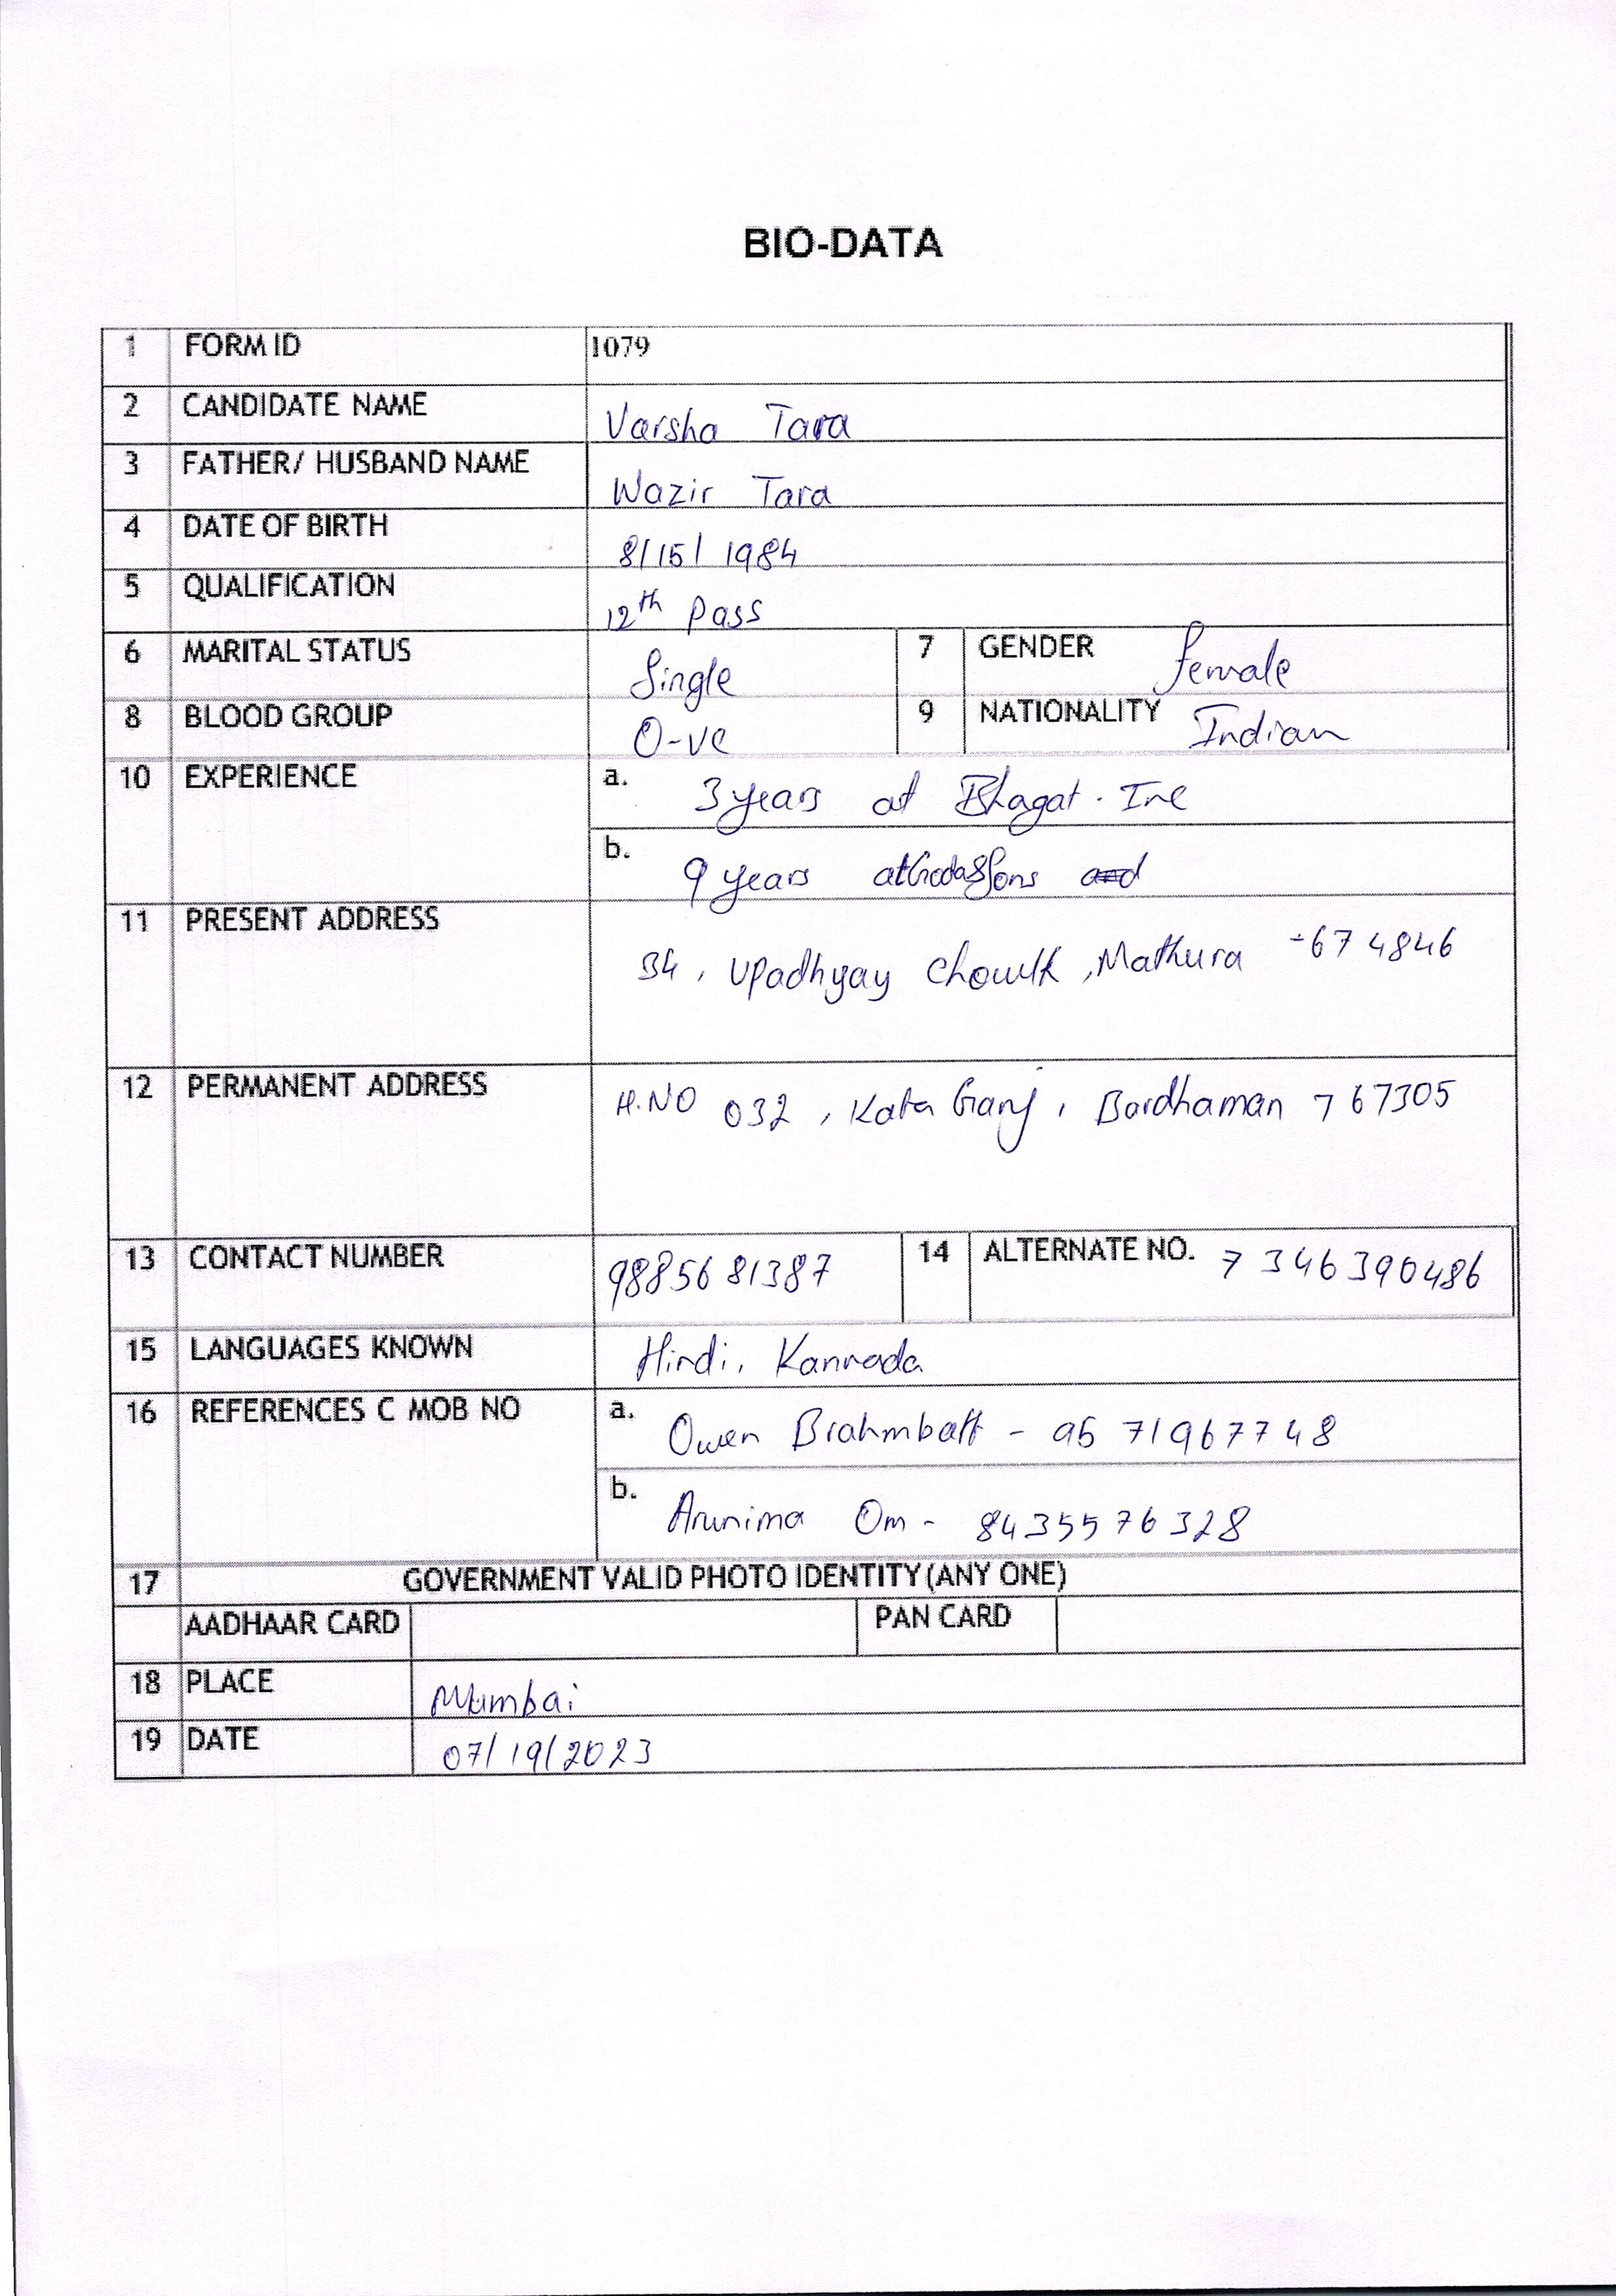 BIO-DATA
1 FORM ID 1079
2 CANDIDATE NAME Varsha Tara
3 FATHER/ HUSBAND NAME Wazir Tara
4 DATE OF BIRTH 8/15/1984
5 QUALIFICATION 12th Pass
6 MARITAL STATUS Single 7 GENDER female
8 BLOOD GROUP O-ve 9 NATIONALITY Indian
10 EXPERIENCE a. 3 years at Bhagat. Inc
b. 9 years at & Sons
11 PRESENT ADDRESS 34, Upadhyay Chowk, Mathura -674846
12 PERMANENT ADDRESS H.NO 032, Kata Ganj, Bardhaman 767305
13 CONTACT NUMBER 9885681387 14 ALTERNATE NO. 7346390486
15 LANGUAGES KNOWN Hindi, Kannada
16 REFERENCES C MOB NO a. Owen Brahmbatt - 9571967748
b. Arunima Om - 8435576328
17 GOVERNMENT VALID PHOTO IDENTITY(ANY ONE)
AADHAAR CARD PAN CARD
18 PLACE Mumbai
19 DATE 07/19/2023